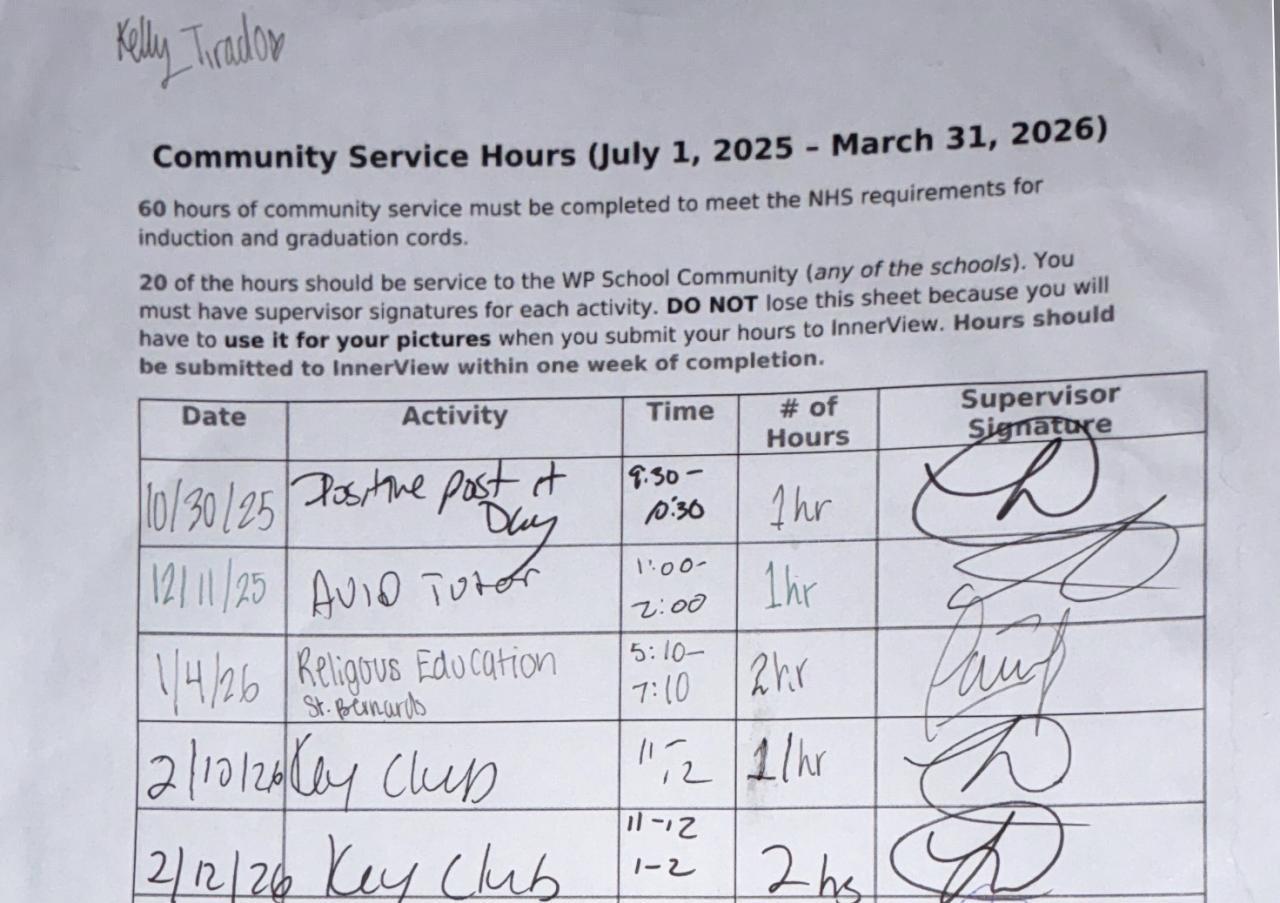 Kelly Tirado
Community Service Hours (July 1, 2025 – March 31, 2026)
60 hours of community service must be completed to meet the NHS requirements for
induction and graduation cords.
20 of the hours should be service to the WP School Community (any of the schools). You
must have supervisor signatures for each activity. DO NOT lose this sheet because you will
have to use it for your pictures when you submit your hours to InnerView. Hours should
be submitted to InnerView within one week of completion.
Date Activity Time # of Hours Supervisor Signature
10/30/25 Positive post it Day 9:30- 10:30 1hr
12/11/25 AVID Tutor 1:00- 2:00 1hr
1/4/26 Religous Education St. Bernards 5:10- 7:10 2hr
2/10/26 Key Club 11- 12 1hr
2/12/26 Key Club 11-12 1-2 2hs